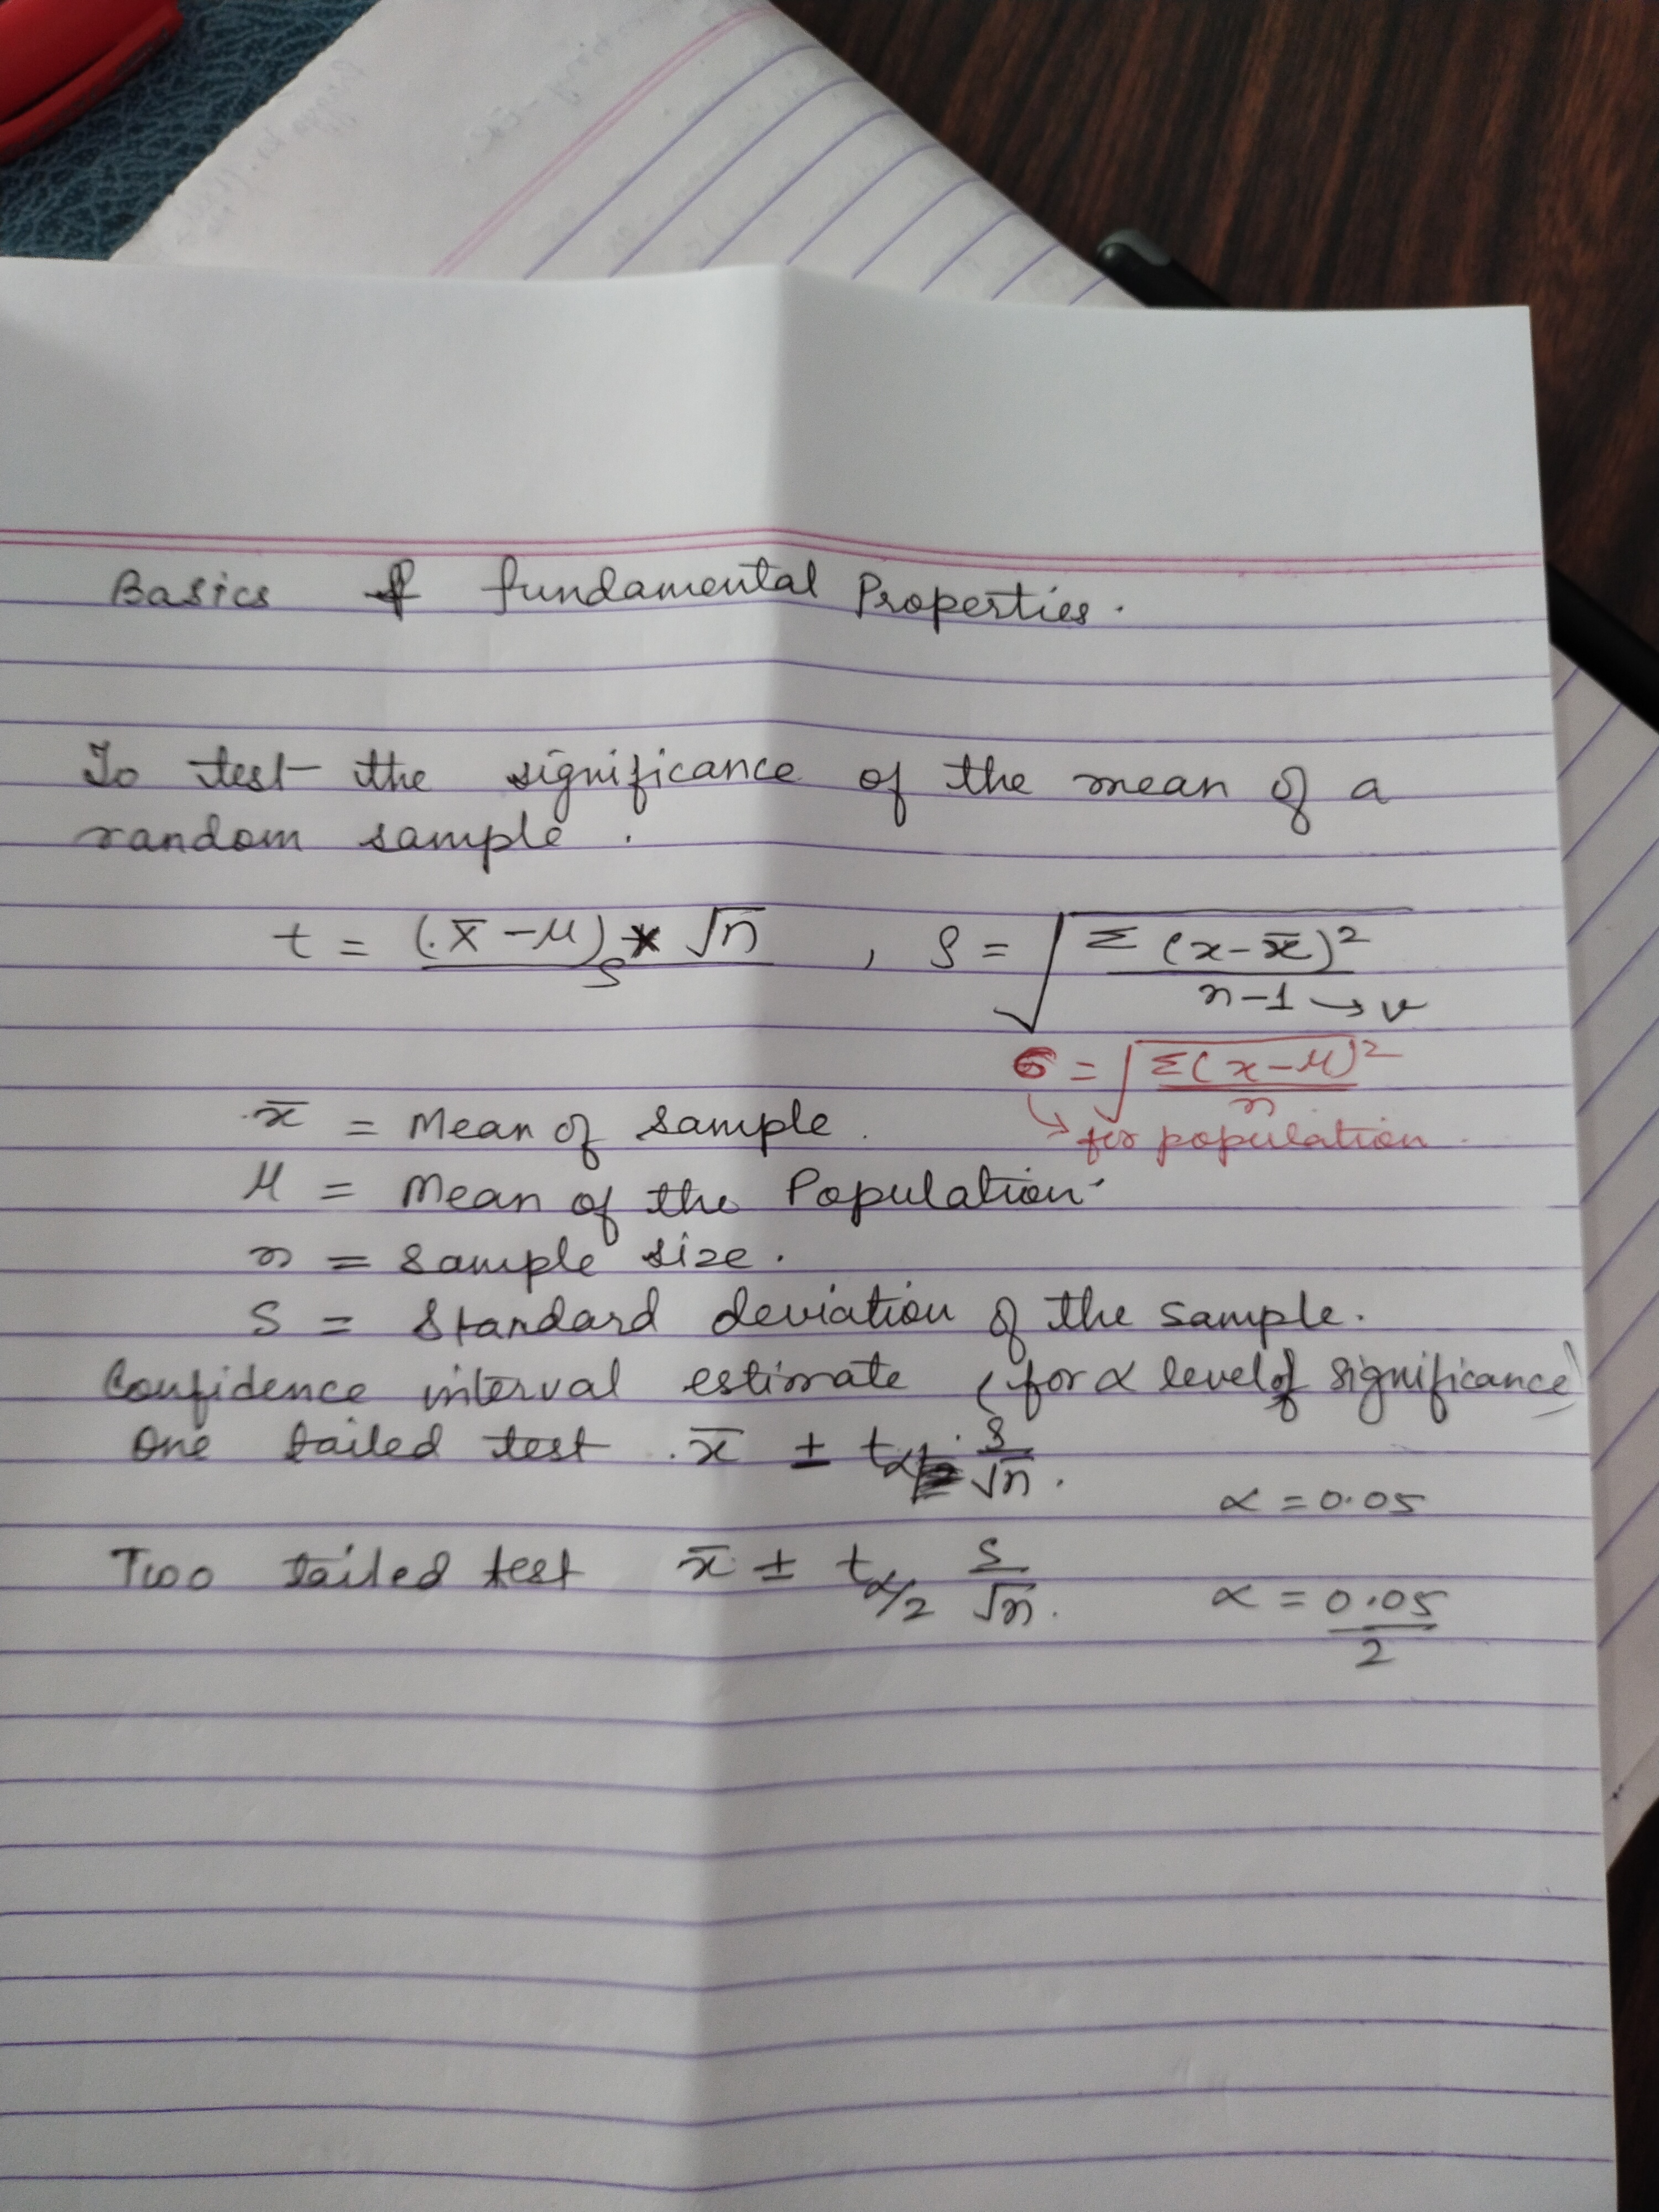 Basics of fundamental Properties.
To test the significance of the mean of a
random sample.
t = (x̄ - μ) * √n / S , S = √(Σ (x - x̄)² / n-1 → v)
σ = √(Σ(x - μ)² / n)
↳ for population.
x̄ = Mean of sample.
μ = Mean of the Population.
n = sample size.
S = Standard deviation of the sample.
Confidence interval estimate (for α level of significance)
One tailed test x̄ ± tα S/√n.
α = 0.05
Two tailed test x̄ ± tα/2 S/√n.
α = 0.05/2